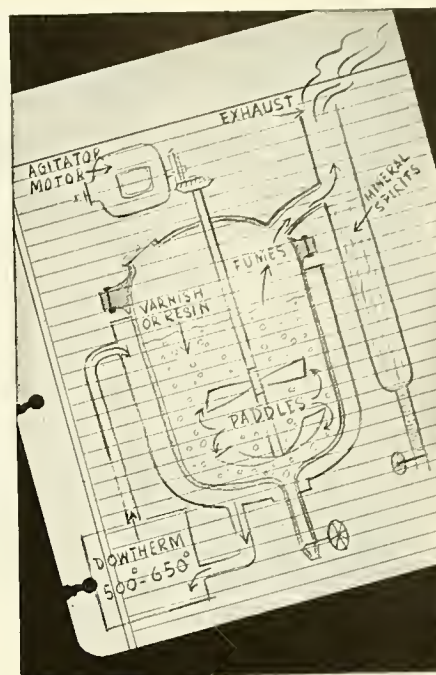 EXHAUST
AGITATOR
MOTOR
MINERAL
SPIRITS
FUMES
VARNISH
OR RESIN
PADDLES
DOWTHERM
500°-650°